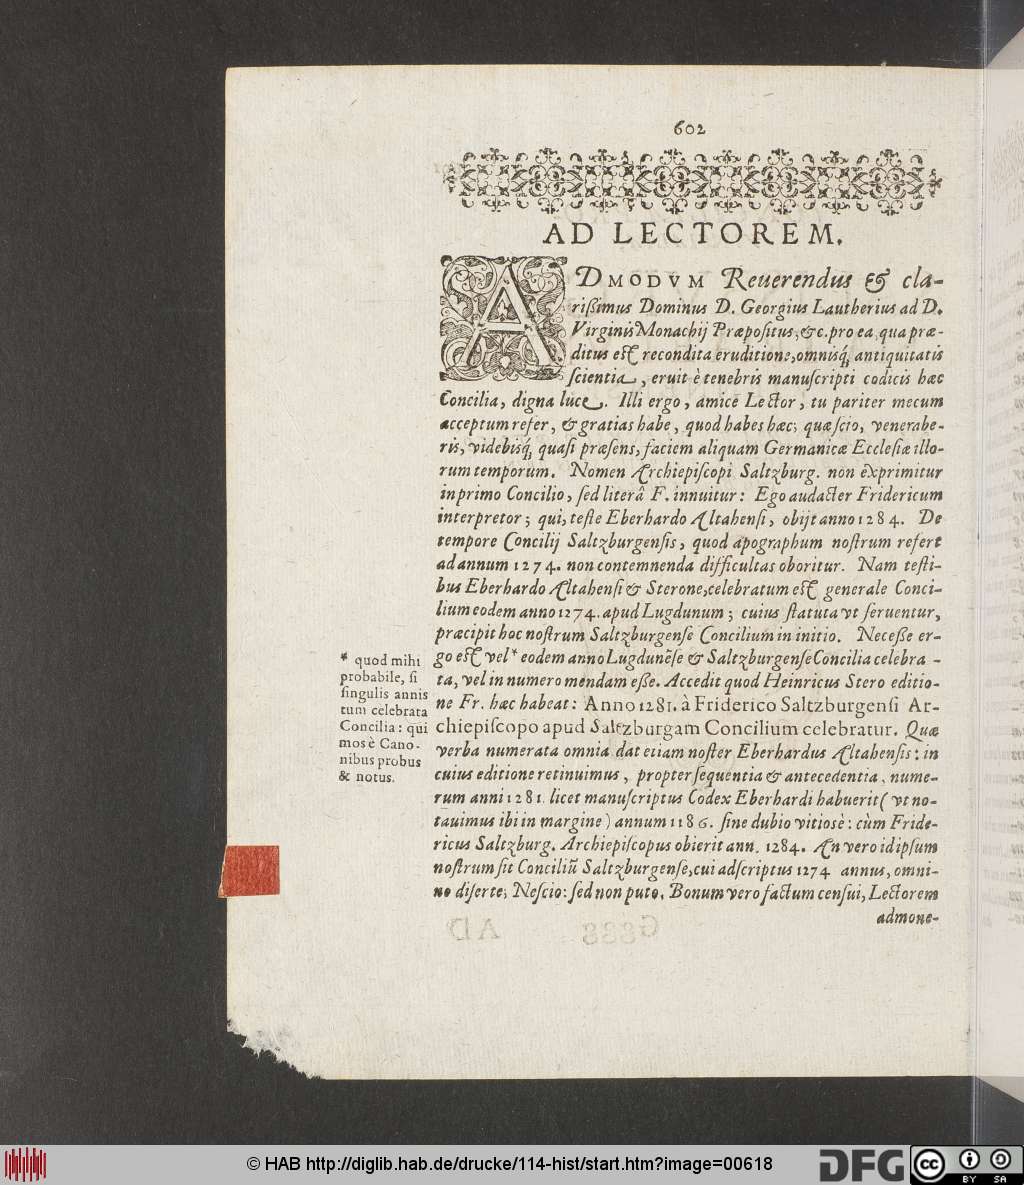 602
AD LECTOREM.
ADMODVM Reuerendus & cla-
rißimus Dominus D. Georgius Lautherius ad D.
Virginis Monachij Præpositus, &c. pro ea, qua præ-
ditus est recondita eruditione, omnisq́; antiquitatis
scientia, eruit è tenebris manuscripti codicis hæc
Concilia, digna luce. Illi ergo, amice Lector, tu pariter mecum
acceptum refer, & gratias habe, quod habes hæc; quæ scio, venerabe-
ris, videbisq́; quasi præsens, faciem aliquam Germanicæ Ecclesiæ illo-
rum temporum. Nomen Archiepiscopi Saltzburg. non exprimitur
in primo Concilio, sed literâ F. innuitur: Ego audacter Fridericum
interpretor; qui, teste Eberhardo Altahensi, obijt anno 1284. De
tempore Concilij Saltzburgensis, quod apographum nostrum refert
ad annum 1274. non contemnenda difficultas oboritur. Nam testi-
bus Eberhardo Altahensi & Sterone, celebratum est generale Conci-
lium eodem anno 1274. apud Lugdunum; cuius statuta vt seruentur,
præcipit hoc nostrum Saltzburgense Concilium in initio. Neceße er-
go est vel * eodem anno Lugdunẽse & Saltzburgense Concilia celebra -
ta, vel in numero mendam eße. Accedit quod Heinricus Stero editio-
ne Fr. hæc habeat: Anno 1281. à Friderico Saltzburgensi Ar-
chiepiscopo apud Saltzburgam Concilium celebratur. Quæ
verba numerata omnia dat etiam noster Eberhardus Altahensis: in
cuius editione retinuimus, propter sequentia & antecedentia, nume-
rum anni 1281. licet manuscriptus Codex Eberhardi habuerit (vt no-
tauimus ibi in margine) annum 1186. sine dubio vitiosè: cùm Fride-
ricus Saltzburg. Archiepiscopus obierit ann. 1284. An vero id ipsum
nostrum sit Conciliũ Saltzburgense, cui adscriptus 1274 annus, omni-
no diserte; Nescio: sed non puto. Bonum vero factum censui, Lectorem
admone-
* quod mihi
probabile, si
singulis annis
tum celebrata
Concilia: qui
mos è Cano-
nibus probus
& notus.
© HAB http://diglib.hab.de/drucke/114-hist/start.htm?image=00618
DFG
cc
BY SA